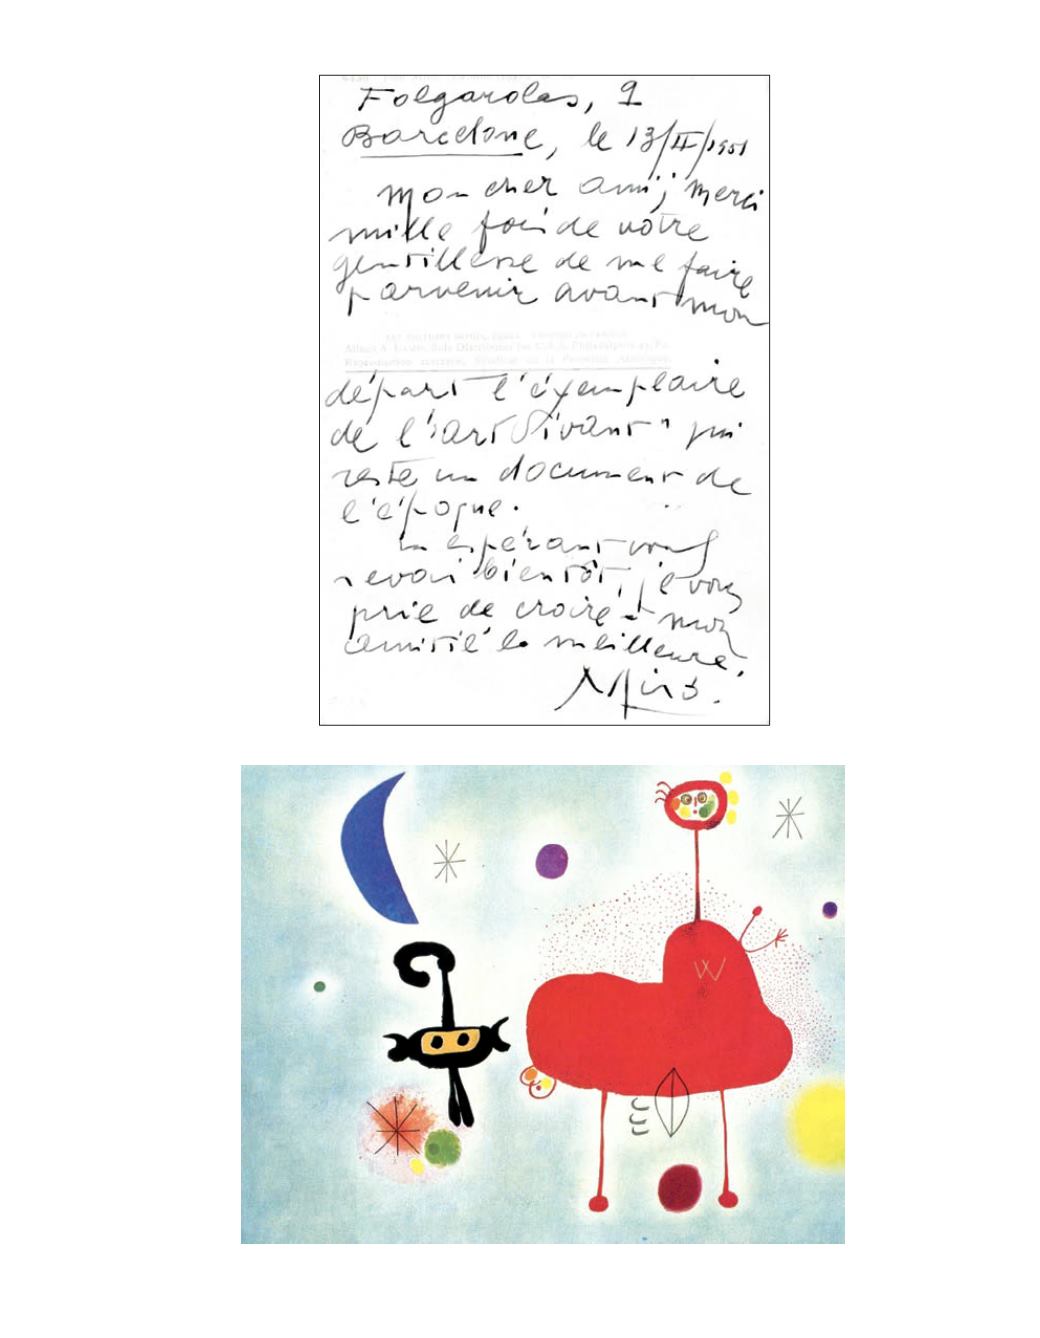 Folgarolas, 9
Barcelone, le 13/II/1951
Mon cher ami, merci
mille fois de votre
gentillesse de me faire
parvenir avant mon
départ l'éxemplaire
de l'art Vivant" qui
reste un document de
l'époque.
En espérant vous
revoir bientôt, je vous
prie de croire à mon
amitié la meilleure.
Miró.